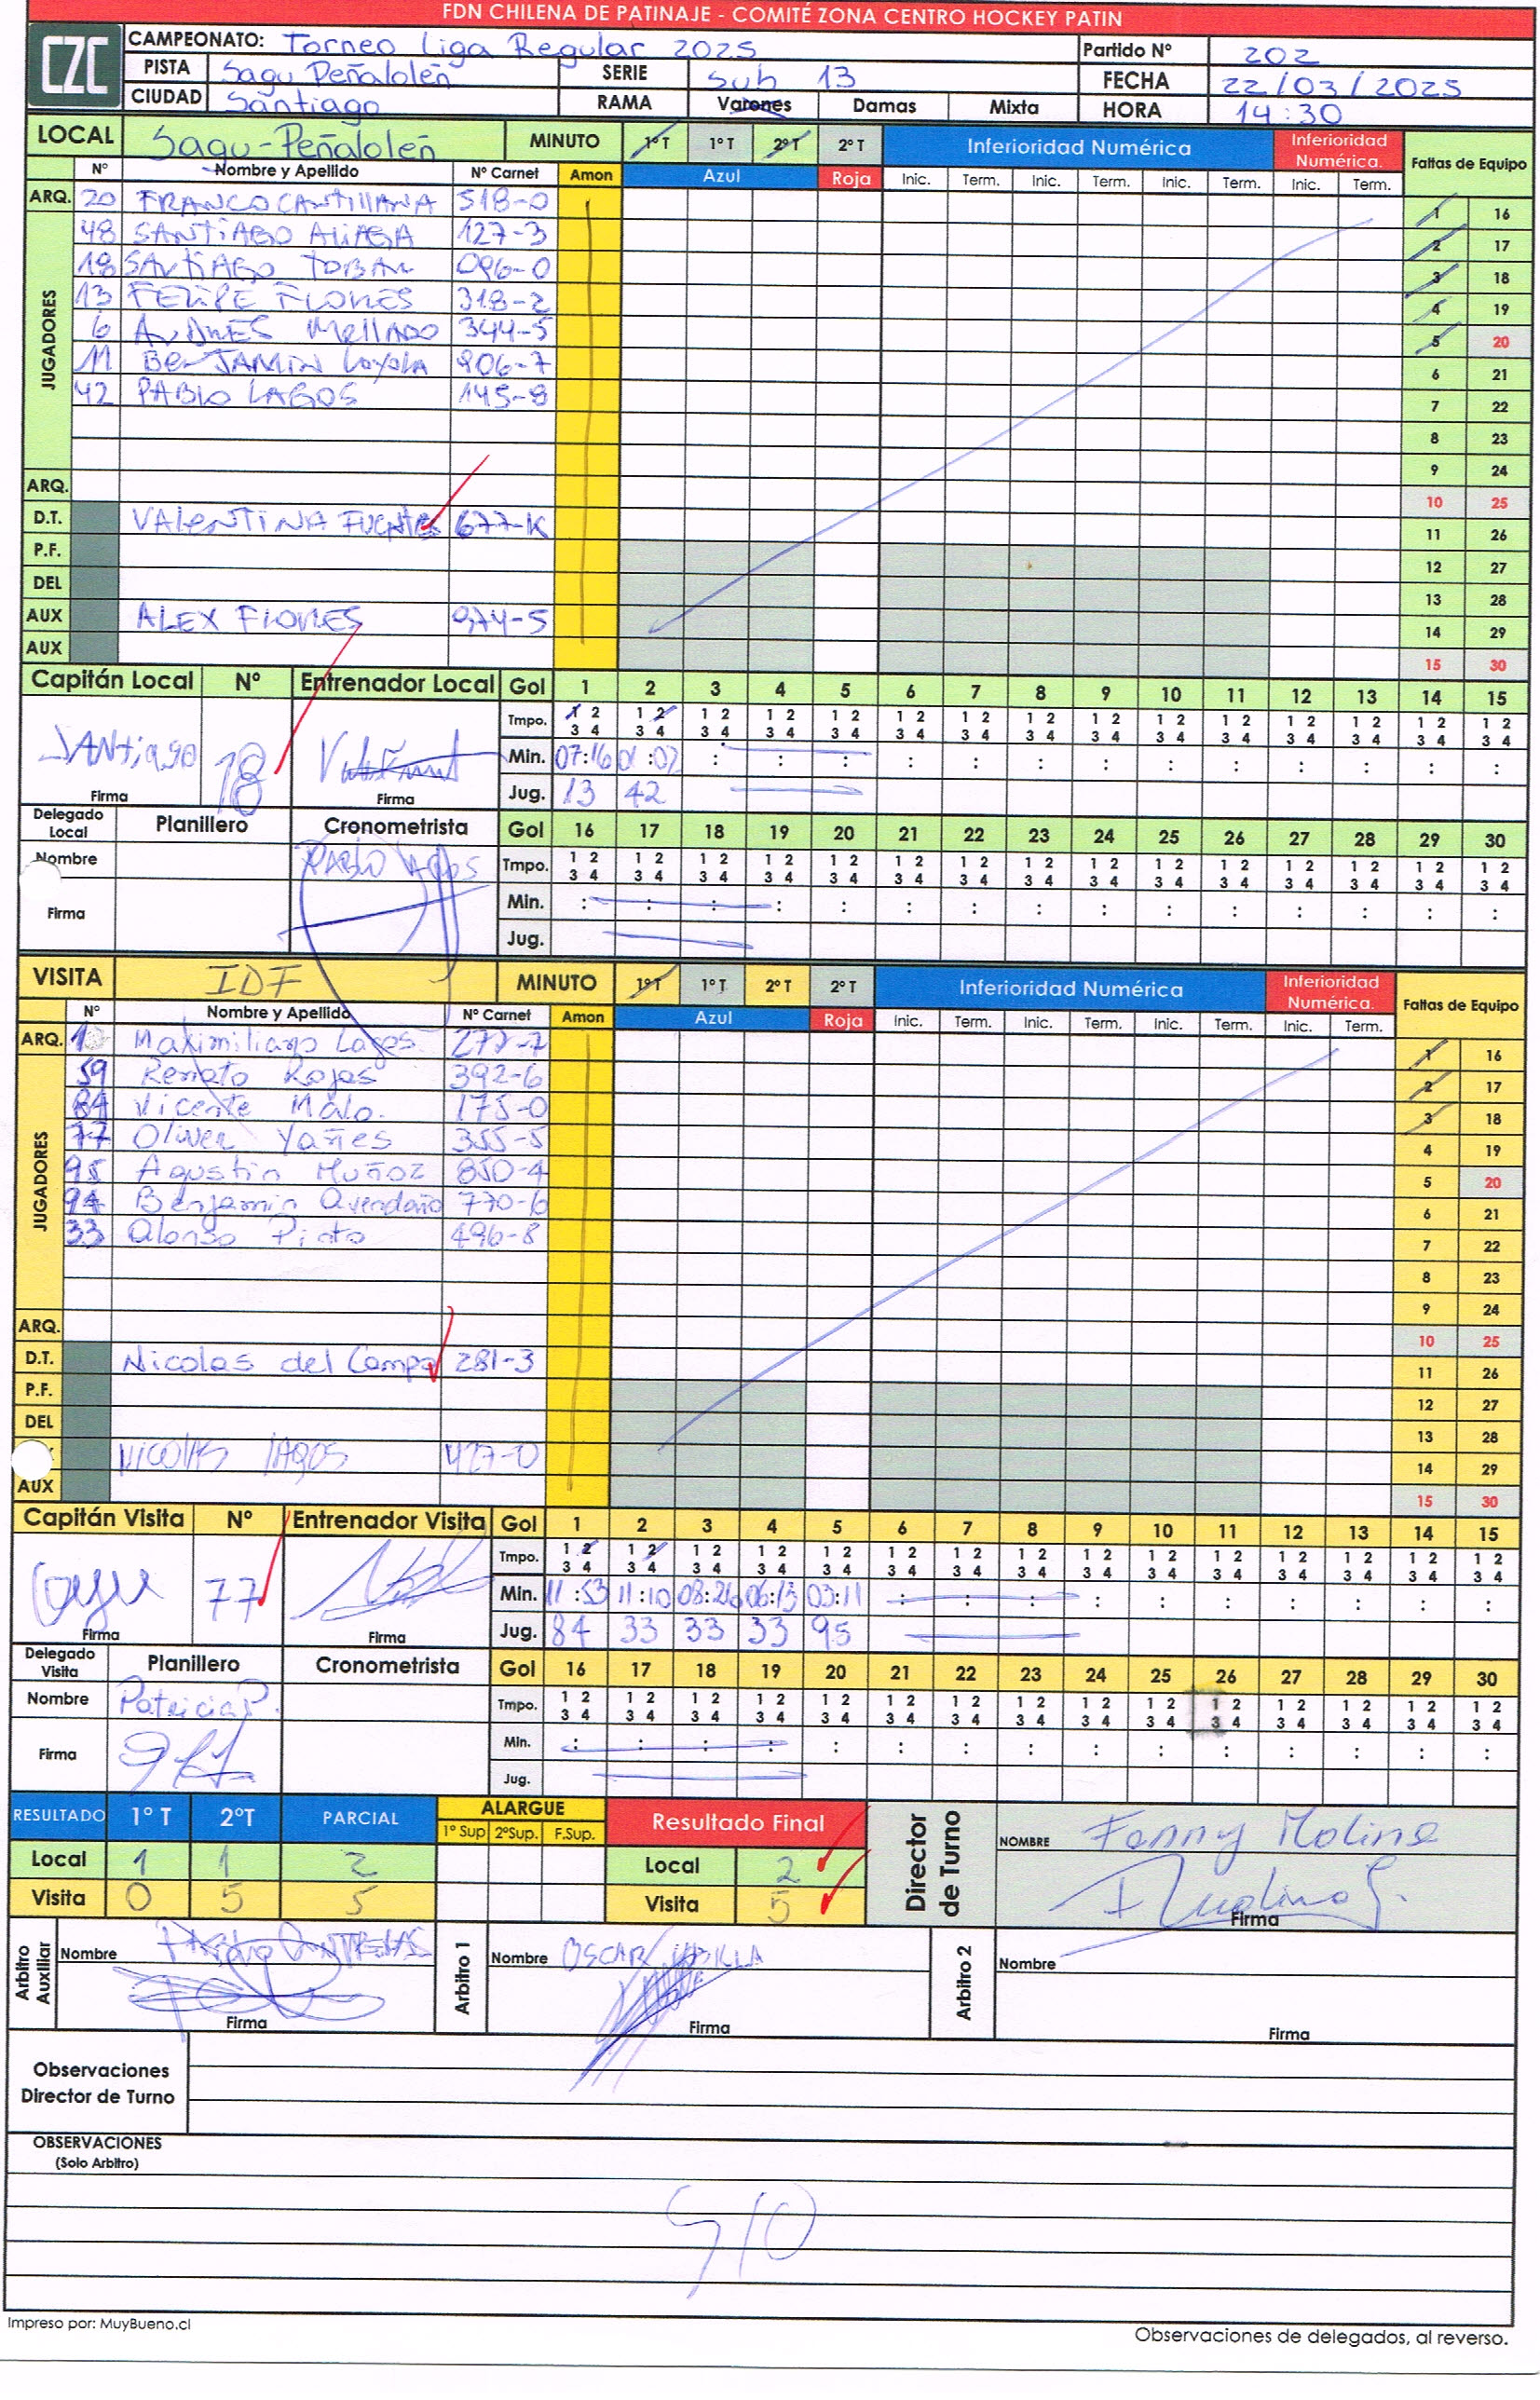 FDN CHILENA DE PATINAJE - COMITÉ ZONA CENTRO HOCKEY PATIN
CZC
CAMPEONATO: Torneo Liga Regular 2025 Partido Nº 202
PISTA Sagu Peñalolén SERIE Sub 13 FECHA 22/03/2025
CIUDAD Santiago RAMA Varones Damas Mixta HORA 14:30
LOCAL Sagu-Peñalolén MINUTO 1º T 1º T 2º T 2º T Inferioridad Numérica Inferioridad Numérica. Faltas de Equipo
Nº Nombre y Apellido Nº Carnet Amon Azul Roja Inic. Term. Inic. Term. Inic. Term. Inic. Term.
ARQ. 20 FRANCO CANTILLANA 518-0 1 16
JUGADORES
48 SANTIAGO ALIAGA 127-3 2 17
18 SANTIAGO TOBAR 096-0 3 18
13 FELIPE FLORES 318-2 4 19
6 ANDRES MELLADO 344-5 5 20
11 BENJAMIN Loyola 906-7 6 21
42 PABLO LAGOS 145-8 7 22
8 23
9 24
ARQ. 10 25
D.T. VALENTINA FUENTES 677-K 11 26
P.F. 12 27
DEL 13 28
AUX ALEX FLORES 974-5 14 29
AUX 15 30
Capitán Local Nº Entrenador Local Gol 1 2 3 4 5 6 7 8 9 10 11 12 13 14 15
Tmpo. 1 2 3 4 1 2 3 4 1 2 3 4 1 2 3 4 1 2 3 4 1 2 3 4 1 2 3 4 1 2 3 4 1 2 3 4 1 2 3 4 1 2 3 4 1 2 3 4 1 2 3 4 1 2 3 4 1 2 3 4
SANTIAGO 18 Min. 07:16 01:02 : : : : : : : : : : : : :
Firma Firma Jug. 13 42
Delegado Local Planillero Cronometrista Gol 16 17 18 19 20 21 22 23 24 25 26 27 28 29 30
Nombre PABLO LAGOS Tmpo. 1 2 3 4 1 2 3 4 1 2 3 4 1 2 3 4 1 2 3 4 1 2 3 4 1 2 3 4 1 2 3 4 1 2 3 4 1 2 3 4 1 2 3 4 1 2 3 4 1 2 3 4 1 2 3 4 1 2 3 4
Firma Min. : : : : : : : : : : : : : : :
Jug.
VISITA IDF MINUTO 1º T 1º T 2º T 2º T Inferioridad Numérica Inferioridad Numérica. Faltas de Equipo
Nº Nombre y Apellido Nº Carnet Amon Azul Roja Inic. Term. Inic. Term. Inic. Term. Inic. Term.
ARQ. 1 Maximiliano Lagos 277-7 1 16
JUGADORES
59 Renato Rojas 392-6 2 17
84 Vicente Malo. 175-0 3 18
77 Oliver Yañes 355-5 4 19
95 Agustin Muñoz 850-4 5 20
94 Benjamin Avendaño 770-6 6 21
33 Alonso Pinto 496-8 7 22
8 23
9 24
ARQ. 10 25
D.T. Nicolas del Campo 281-3 11 26
P.F. 12 27
DEL 13 28
NICOLAS LAGOS 427-0 14 29
AUX 15 30
Capitán Visita Nº Entrenador Visita Gol 1 2 3 4 5 6 7 8 9 10 11 12 13 14 15
Tmpo. 1 2 3 4 1 2 3 4 1 2 3 4 1 2 3 4 1 2 3 4 1 2 3 4 1 2 3 4 1 2 3 4 1 2 3 4 1 2 3 4 1 2 3 4 1 2 3 4 1 2 3 4 1 2 3 4 1 2 3 4
77 Min. 11:53 11:10 08:26 06:13 03:11 : : : : : : : : : :
Firma Firma Jug. 84 33 33 33 95
Delegado Visita Planillero Cronometrista Gol 16 17 18 19 20 21 22 23 24 25 26 27 28 29 30
Nombre Patricia P. Tmpo. 1 2 3 4 1 2 3 4 1 2 3 4 1 2 3 4 1 2 3 4 1 2 3 4 1 2 3 4 1 2 3 4 1 2 3 4 1 2 3 4 1 2 3 4 1 2 3 4 1 2 3 4 1 2 3 4 1 2 3 4
Firma Min. : : : : : : : : : : : : : : :
Jug.
RESULTADO 1º T 2ºT PARCIAL ALARGUE 1º Sup 2ºSup. F.Sup. Resultado Final Director de Turno NOMBRE Fanny Molina
Local 1 1 2 Local 2
Visita 0 5 5 Visita 5 Firma
Arbitro Auxiliar Nombre Arbitro 1 Nombre OSCAR Arbitro 2 Nombre
Firma Firma Firma
Observaciones
Director de Turno
OBSERVACIONES
(Solo Arbitro)
S/O
Impreso por: MuyBueno.cl
Observaciones de delegados, al reverso.